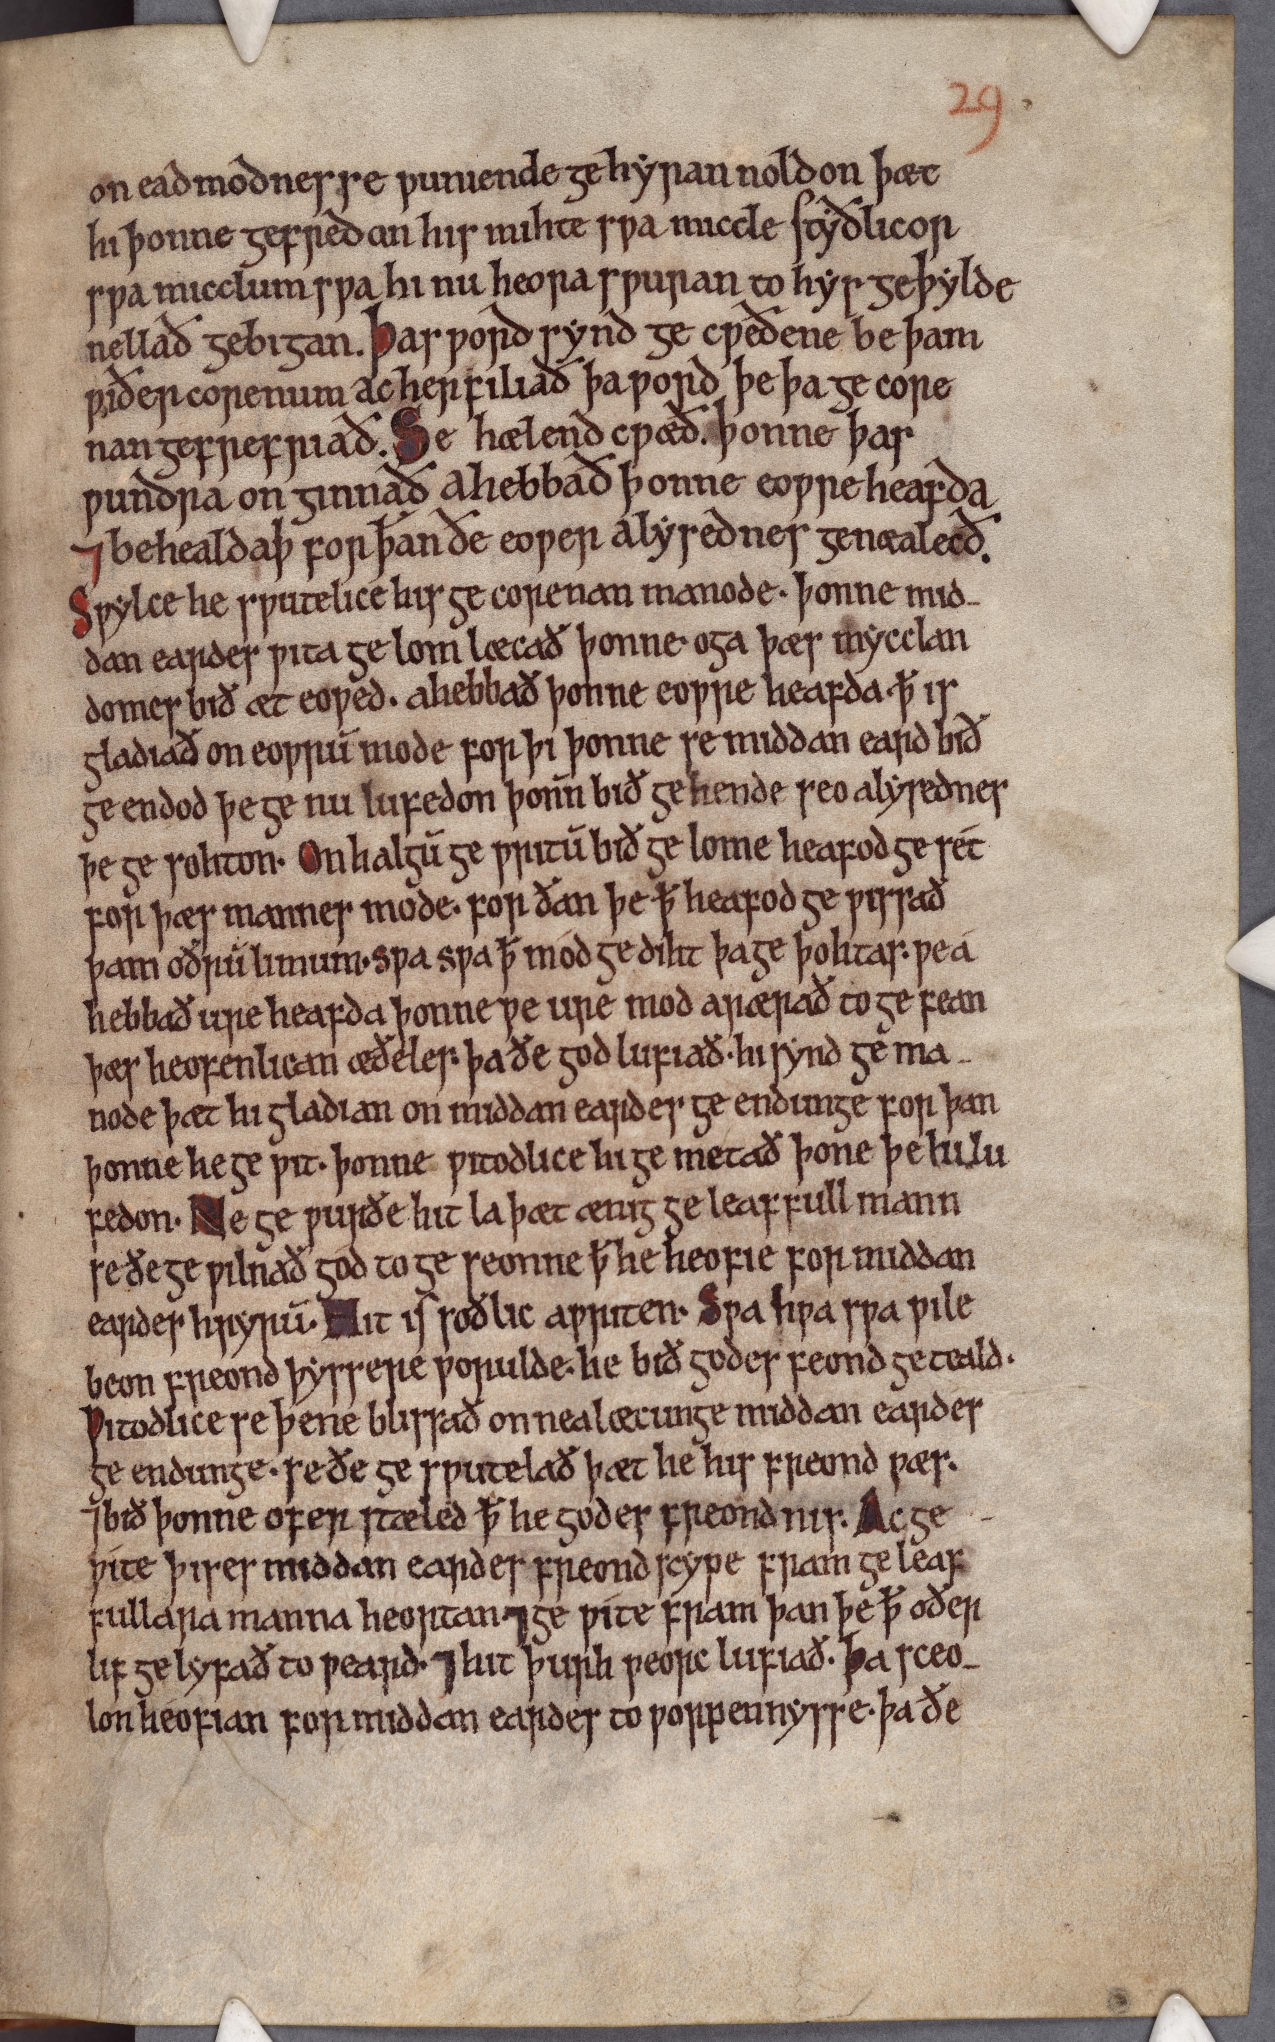 29
on eadmodnesse ƿuniende gehẏran noldon þæt
hi þonne gefredan his mihte sƿa miccle stẏðlicor
sƿa micclum sƿa hi nu heora sƿuran to hẏs geþẏlde
nellað gebigan. Þas ƿord sẏnd ge cƿedene be þam
ƿiðer corenum ac her filiað þa ƿord þe þa ge core
nan gefrefriað. Se hælend cƿæð. þonne þas
ƿundra on ginnað ahebbað þonne eoƿre heafda
⁊ behealdaþ for þan ðe eoƿer alẏsednes genealecð.
Sƿẏlce he sƿutelice his ge corenan manode. þonne mid-
dan eardes ƿita ge lom læcað þonne oga þæs mẏcclan
domes bið æt eoƿed. ahebbað þonne eoƿre heafda ꝥ is
gladiað on eoƿrū mode for þi þonne se middan eard bið
ge endod þe ge nu lufedon þonn̄ bið ge hende seo alẏsednes
þe ge sohton. On halgū ge ƿritū bið ge lome heafod ge sét
for þæs mannes mode. for ðan þe ꝥ heafod ge ƿissað
þam oðrū limum. sƿa sƿa ꝥ mód ge diht þa ge þohtas. ƿe á
hebbað ure heafda þonne ƿe ure mod arærað to ge fean
þæs heofenlican æðeles. þa ðe god lufiað. hi sẏnd ge ma-
node þæt hi gladian on middan eardes ge endunge for þan
þonne he ge ƿit. þonne ƿitodlice hi ge metað þone þe hi lu
fedon. Ne ge ƿurðe hit la þæt ænig ge leaffull mann
se ðe ge ƿilnað gód to ge seonne ꝥ he heofie for middan
eardes hryrū. Hit is soðlic aƿriten. Sƿa hƿa sƿa ƿile
beon freond þẏssere ƿorulde. he bið godes feond ge teald.
Ƿitodlice se þene blissað on nealæcunge middan eardes
ge endunge. se ðe ge sƿutelað þæt he his freond ƿæs.
⁊ bið þonne ofer stæled ꝥ he godes freond nis. Ac ge
ƿíte þises middan eardes freondscẏpe fram ge leaf
fullara manna heortan. ⁊ ge ƿíte fram þan þe ꝥ oðer
lif ge lyfað to ƿeard. ⁊ hit þurh ƿeorc lufiað. Þa sceo-
lon heofian for middan eardes to ƿorpennysse. þa ðe